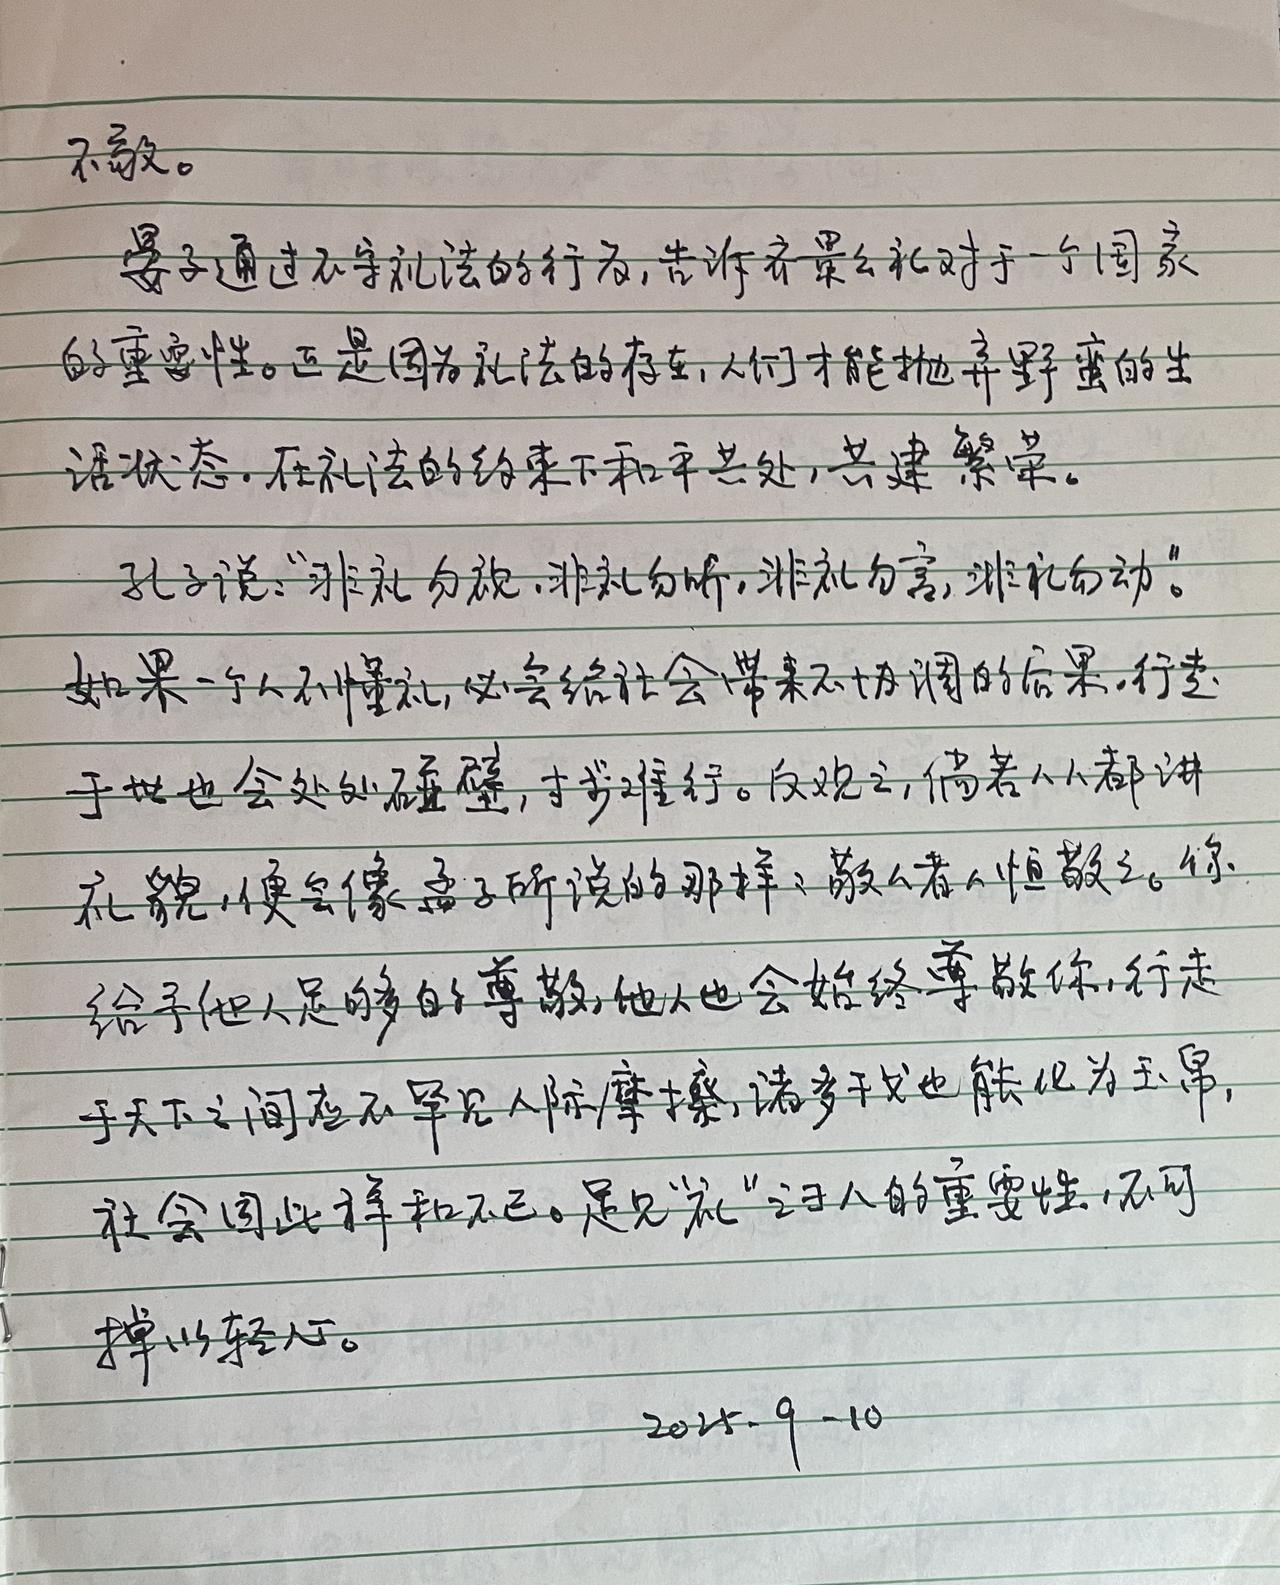 不敬。
晏子通过不守礼法的行为,告诉齐景公礼对于一个国家
的重要性。正是因为礼法的存在,人们才能抛弃野蛮的生
活状态,在礼法的约束下和平共处,共建繁荣。
孔子说:“非礼勿视,非礼勿听,非礼勿言,非礼勿动”。
如果一个人不懂礼,必会给社会带来不协调的后果,行走
于世也会处处碰壁,寸步难行。反观之,倘若人人都讲
礼貌,便会像孟子所说的那样:敬人者人恒敬之。你
给予他人足够多的尊敬,他人也会始终尊敬你,行走
于天下之间应不罕见人际摩擦,诸多干戈也能化为玉帛,
社会因此祥和不已。足见“礼”之于人的重要性,不可
掉以轻心。
2025-9-10